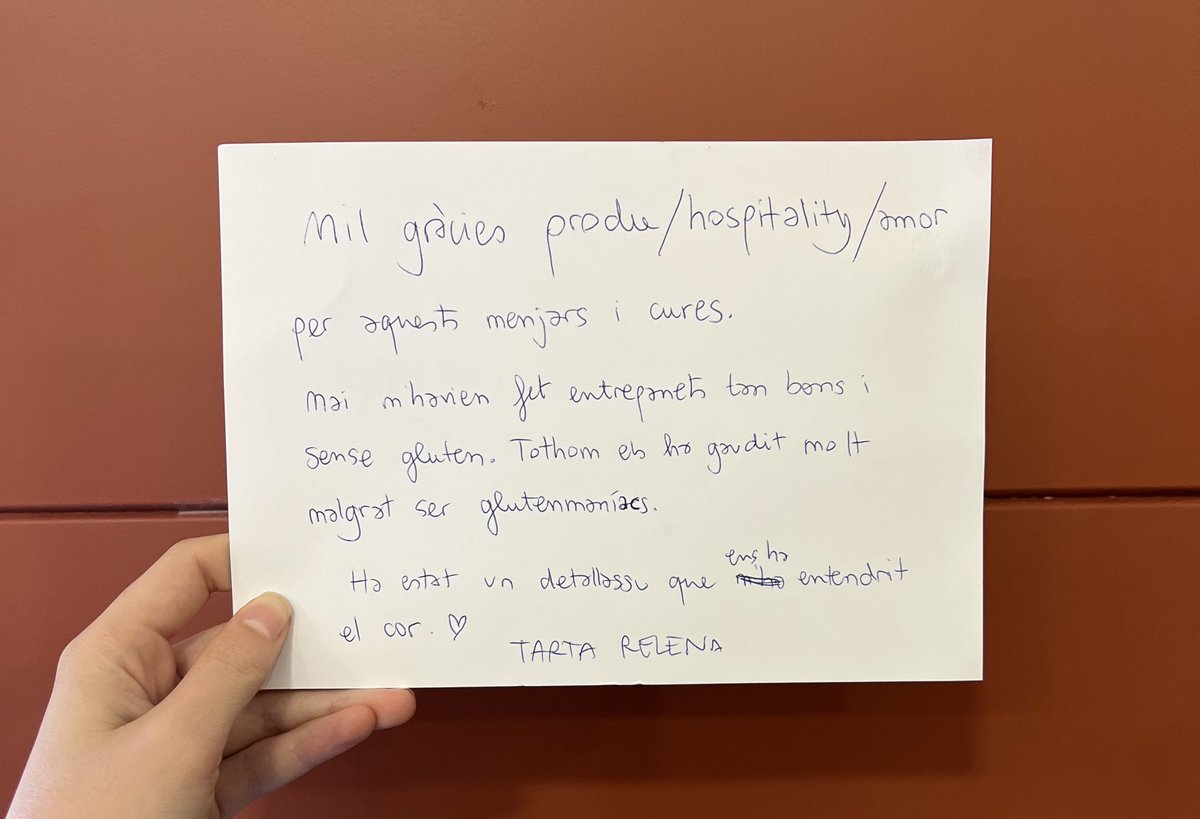 Mil gràcies produ/hospitality/amor
per aquests menjars i cures.
Mai m'havien fet entrepanets tan bons i
sense gluten. Tothom els ha gaudit molt
malgrat ser glutenmaníacs.
Ha estat un detallassu que ens ha entendrit
el cor. ♡
TARTA RELENA